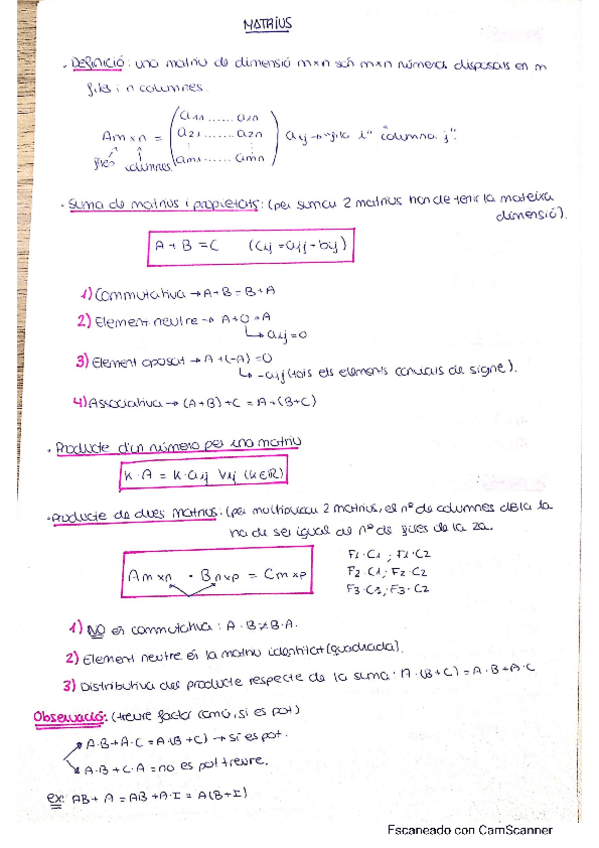 MATRIUS
· Definició: una matriu de dimensió m×n són m×n números disposats en m
files i n columnes.
Am×n = (a11 ...... a1n
a21 ...... a2n
am1 ...... amn) aij → "fila i" "columna j".
files columnes
· Suma de matrius i propietats: (per sumar 2 matrius han de tenir la mateixa
dimensió).
A + B = C (cij = aij + bij)
1) Commutativa → A+B = B+A
2) Element neutre → A+0 = A
↳ aij = 0
3) Element oposat → A + (-A) = 0
↳ -aij (tots els elements canviats de signe).
4) Associativa → (A+B)+C = A+(B+C)
· Producte d'un número per una matriu
K · A = K · aij ∀ij (K∈ℝ)
· Producte de dues matrius: (per multiplicar 2 matrius, el nº de columnes de la 1a
ha de ser igual al nº de files de la 2a.
Am×n · Bn×p = Cm×p
F1·C1 ; F1·C2
F2·C1 ; F2·C2
F3·C2 ; F3·C2
1) NO és commutativa: A·B≠B·A.
2) Element neutre és la matriu identitat (quadrada).
3) Distributiva del producte respecte de la suma: A·(B+C) = A·B+A·C
Observació: (treure factor comú, si es pot)
A·B+A·C = A(B+C) → sí es pot.
A·B+C·A = no es pot treure.
ex: AB+A = AB+A·I = A(B+I)
Escaneado con CamScanner